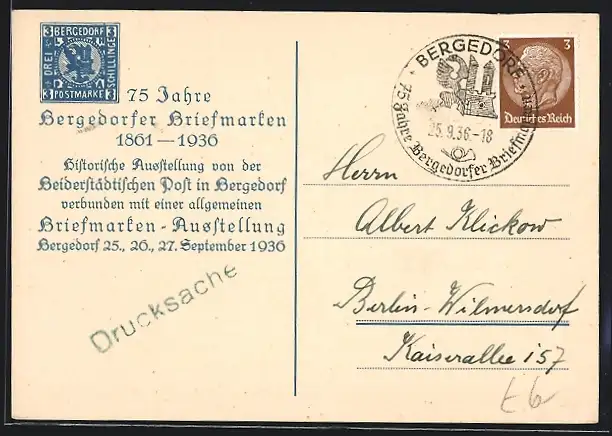 3 BERGEDORF 3
DREI
SCHILLINGE
3 POSTMARKE 3
75 Jahre
Bergedorfer Briefmarken
1861—1936
Historische Ausstellung von der
Beiderstädtischen Post in Bergedorf
verbunden mit einer allgemeinen
Briefmarken-Ausstellung
Bergedorf 25., 26., 27. September 1936
Drucksache
BERGEDORF
75 Jahre Bergedorfer
25.9.36-18
3 3
Deutsches Reich
Herrn
Albert Klickow
Berlin-Wilmersdorf
Kaiserallee 157